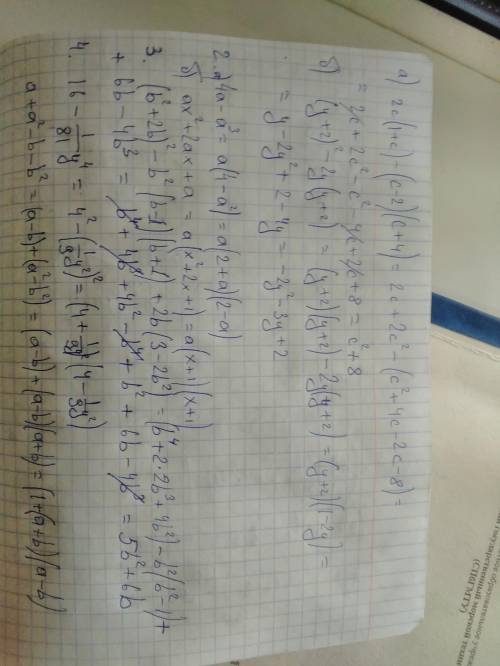 а) 2c(1+c)-(c-2)(c+4) = 2c+2c²-(c²+4c-2c-8) =
= 2c+2c²-c²-4c+2c+8 = c²+8
б) (y+2)²-2y(y+2) = (y+2)(y+2)-2y(y+2) = (y+2)(1-2y) =
= y-2y²+2-4y = -2y²-3y+2
2. а) 4a-a³ = a(4-a²) = a(2+a)(2-a)
б) ax²+2ax+a = a(x²+2x+1) = a(x+1)(x+1)
3. (b²+2b)²-b²(b-1)(b+1)+2b(3-2b²) = (b⁴+2·2b³+4b²)-b²(b²-1)+
+6b-4b³ = b⁴+4b³+4b²-b⁴+b²+6b-4b³ = 5b²+6b
4. 16-1/81y⁴ = 4²-(1/9y²)² = (4+1/9y²)(4-1/9y²)
a+a²-b-b² = (a-b)+(a²-b²) = (a-b)+(a-b)(a+b) = (1+(a+b))(a-b)
(СПбГМТУ)